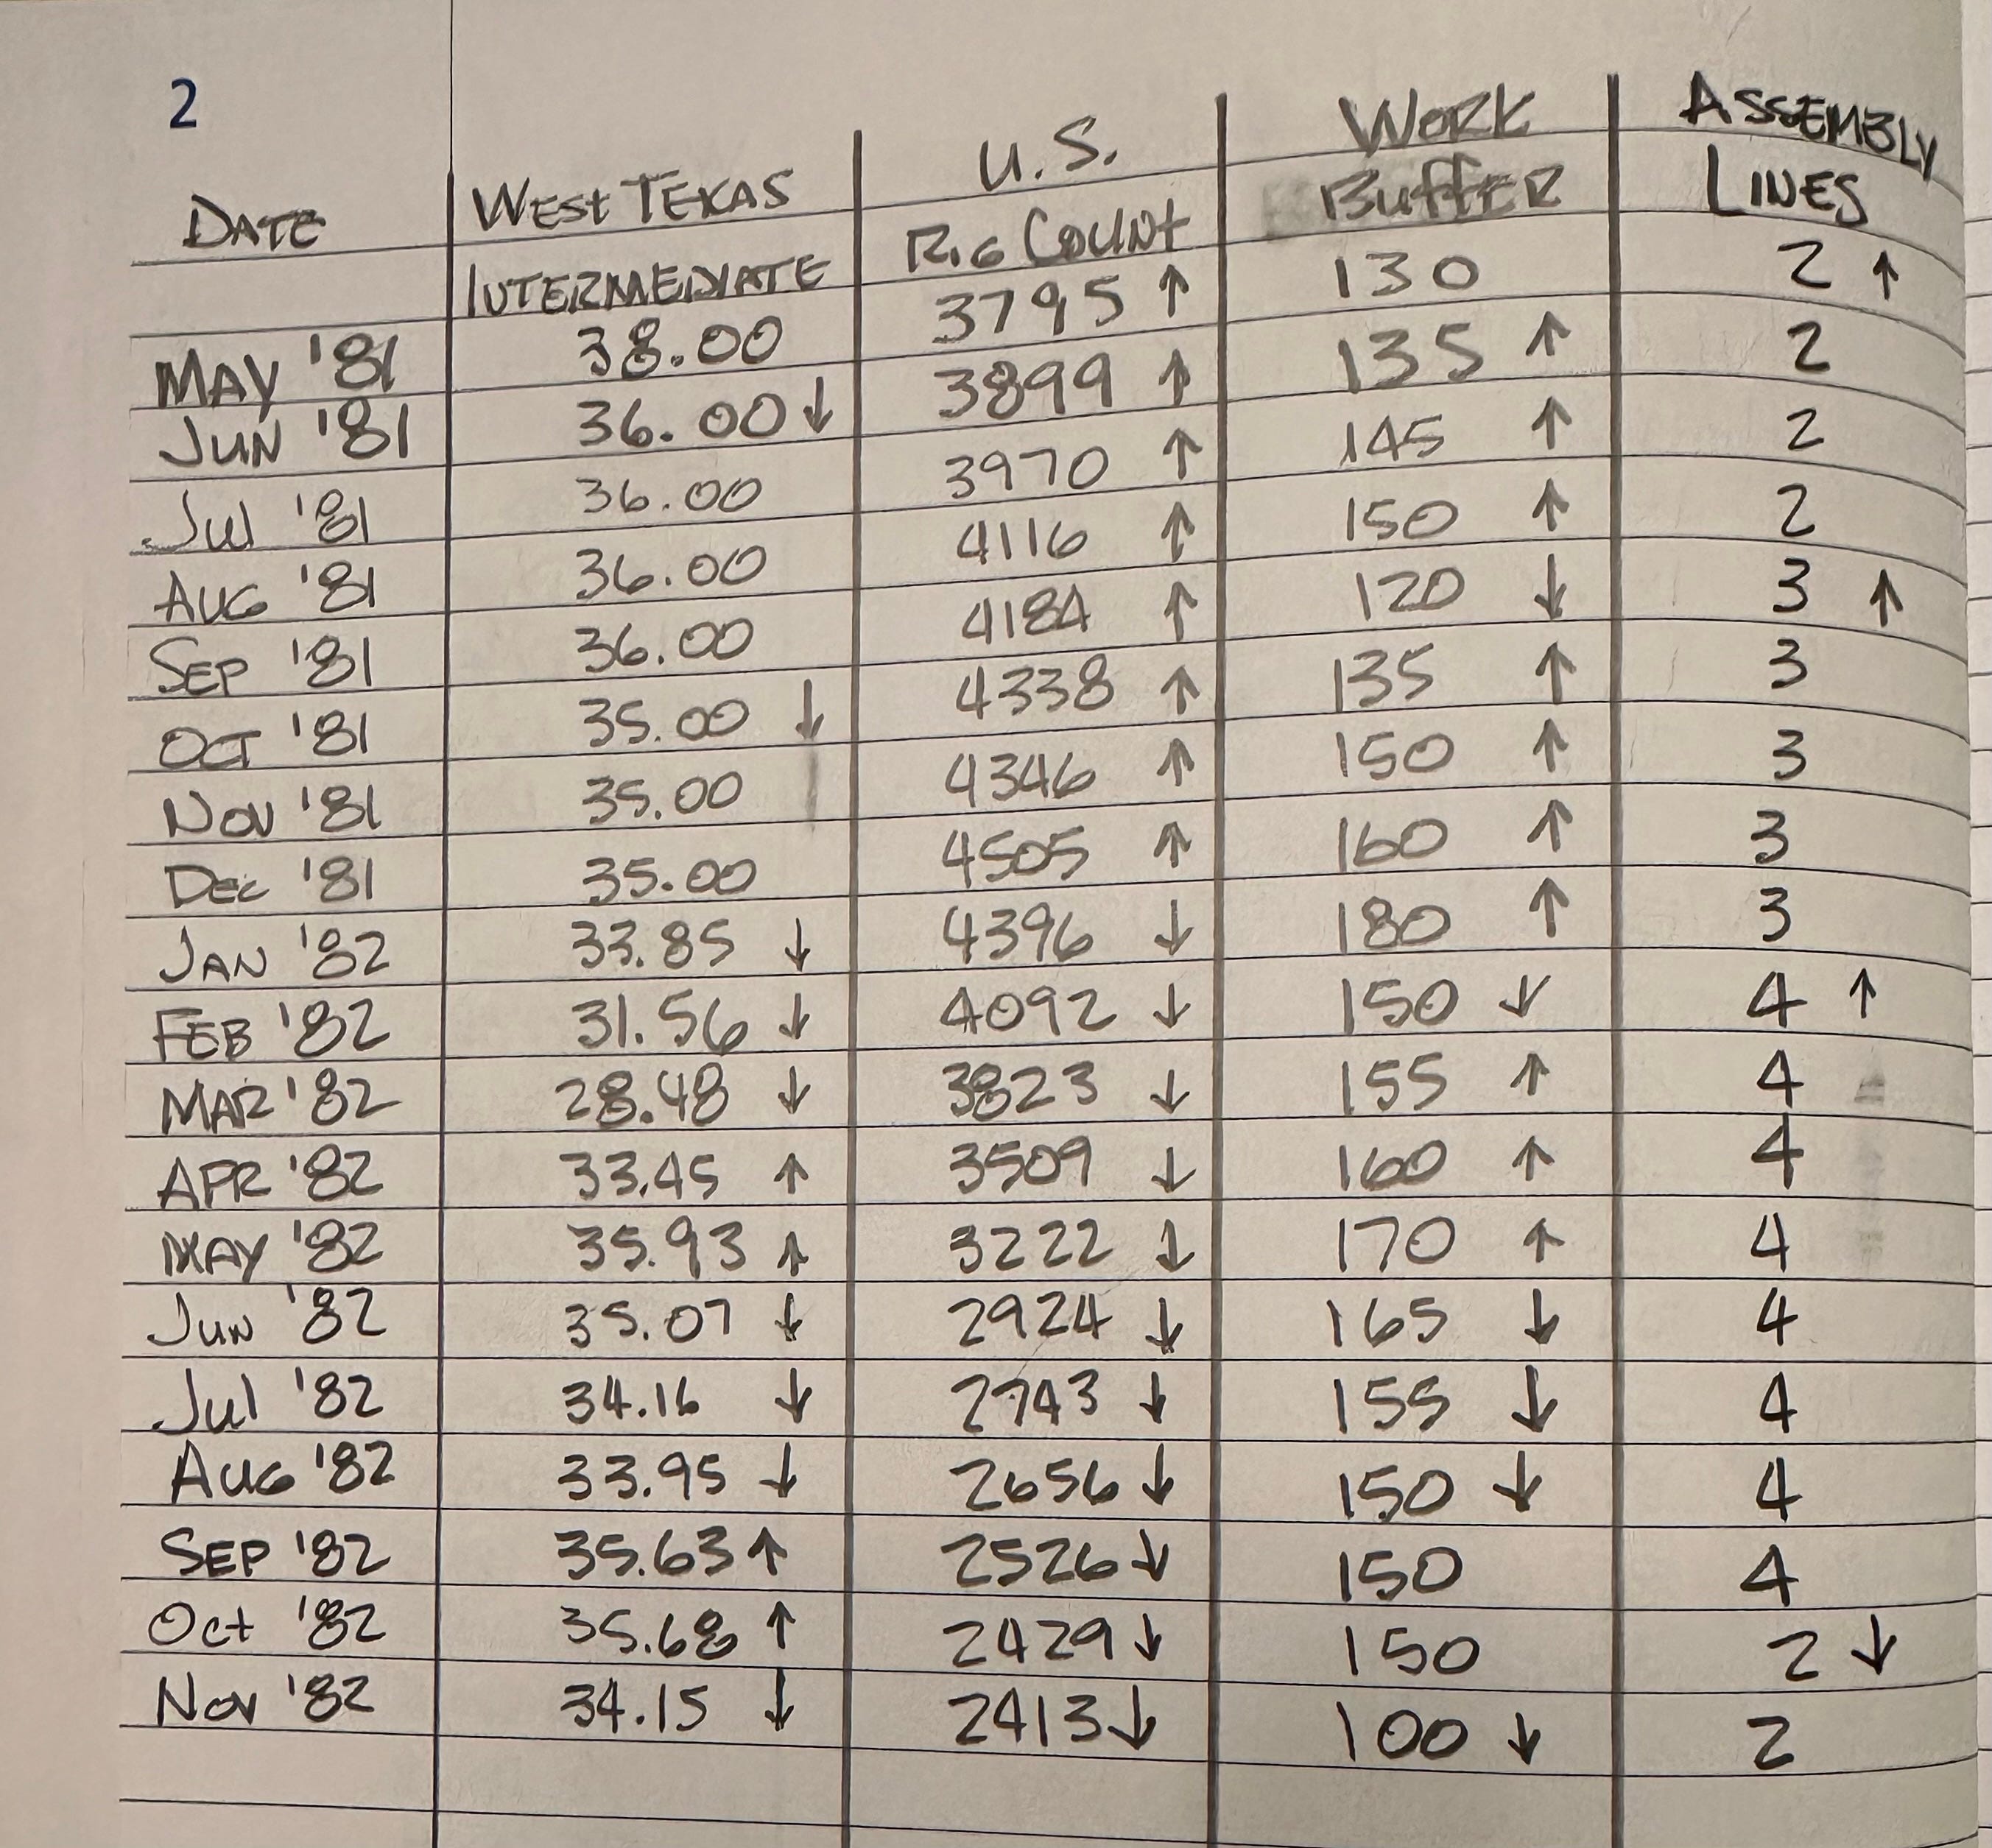 2
DATE WEST TEXAS INTERMEDIATE U.S. RIG COUNT WORK BUFFER ASSEMBLY LINES
MAY '81 38.00 3795 ↑ 130 2 ↑
JUN '81 36.00 ↓ 3899 ↑ 135 ↑ 2
JUL '81 36.00 3970 ↑ 145 ↑ 2
AUG '81 36.00 4116 ↑ 150 ↑ 2
SEP '81 36.00 4184 ↑ 120 ↓ 3 ↑
OCT '81 35.00 ↓ 4338 ↑ 135 ↑ 3
NOV '81 35.00 4346 ↑ 150 ↑ 3
DEC '81 35.00 4505 ↑ 160 ↑ 3
JAN '82 33.85 ↓ 4396 ↓ 180 ↑ 3
FEB '82 31.56 ↓ 4092 ↓ 150 ↓ 4 ↑
MAR '82 28.48 ↓ 3823 ↓ 155 ↑ 4
APR '82 33.45 ↑ 3509 ↓ 160 ↑ 4
MAY '82 35.93 ↑ 3222 ↓ 170 ↑ 4
JUN '82 35.07 ↓ 2924 ↓ 165 ↓ 4
JUL '82 34.16 ↓ 2743 ↓ 155 ↓ 4
AUG '82 33.95 ↓ 2656 ↓ 150 ↓ 4
SEP '82 35.63 ↑ 2526 ↓ 150 4
Oct '82 35.68 ↑ 2429 ↓ 150 2 ↓
NOV '82 34.15 ↓ 2413 ↓ 100 ↓ 2